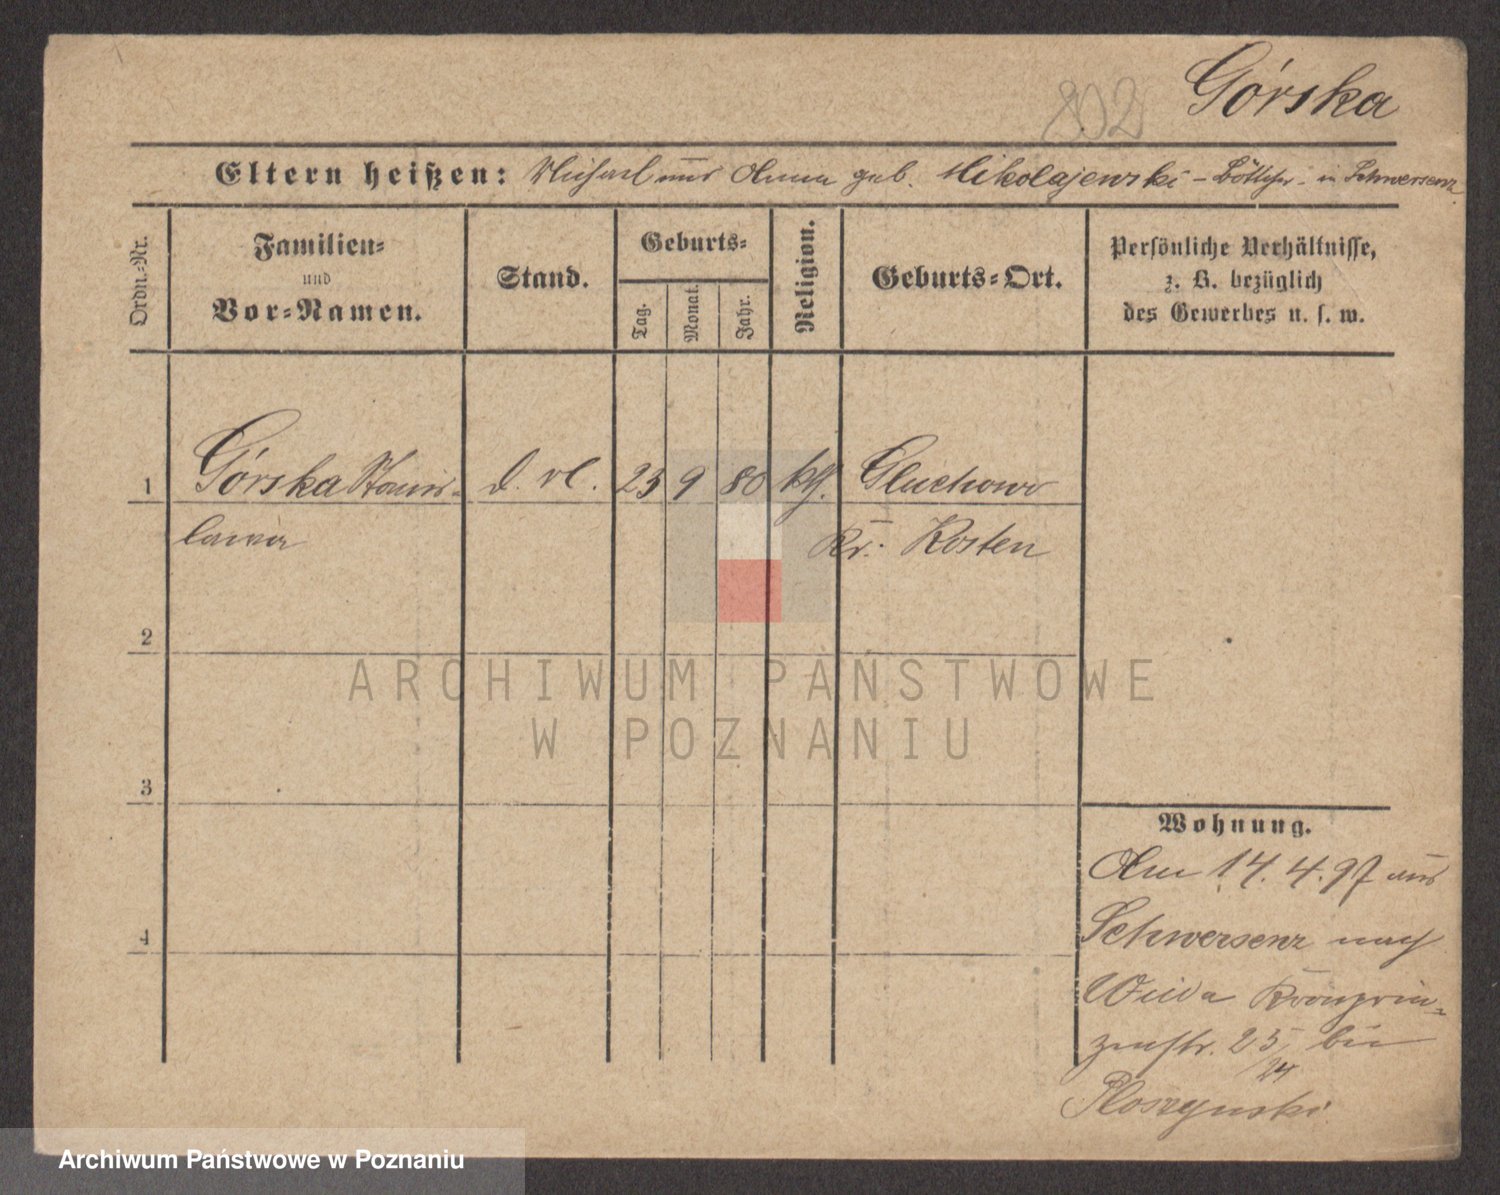 802 Górska
Eltern heißen: Michael und Anna geb. Mikolajewski - Böttcher - in Schwersenz
Ordn.-Nr.
Familien-
und
Vor-Namen.
Stand.
Geburts-
Tag.
Monat.
Jahr.
Religion.
Geburts-Ort.
Persönliche Verhältnisse,
z. B. bezüglich
des Gewerbes u. s. w.
1 Górska Stanis- d. vl. 23 9 80 kth. Gluchowo
lawa Kr. Kosten
2
3
4
ARCHIWUM PAŃSTWOWE
W POZNANIU
Wohnung.
Am 14.4.97 aus
Schwersenz nach
Wilda Kronprin-
zenstr. 25, bei
24
Ploszynski
Archiwum Państwowe w Poznaniu